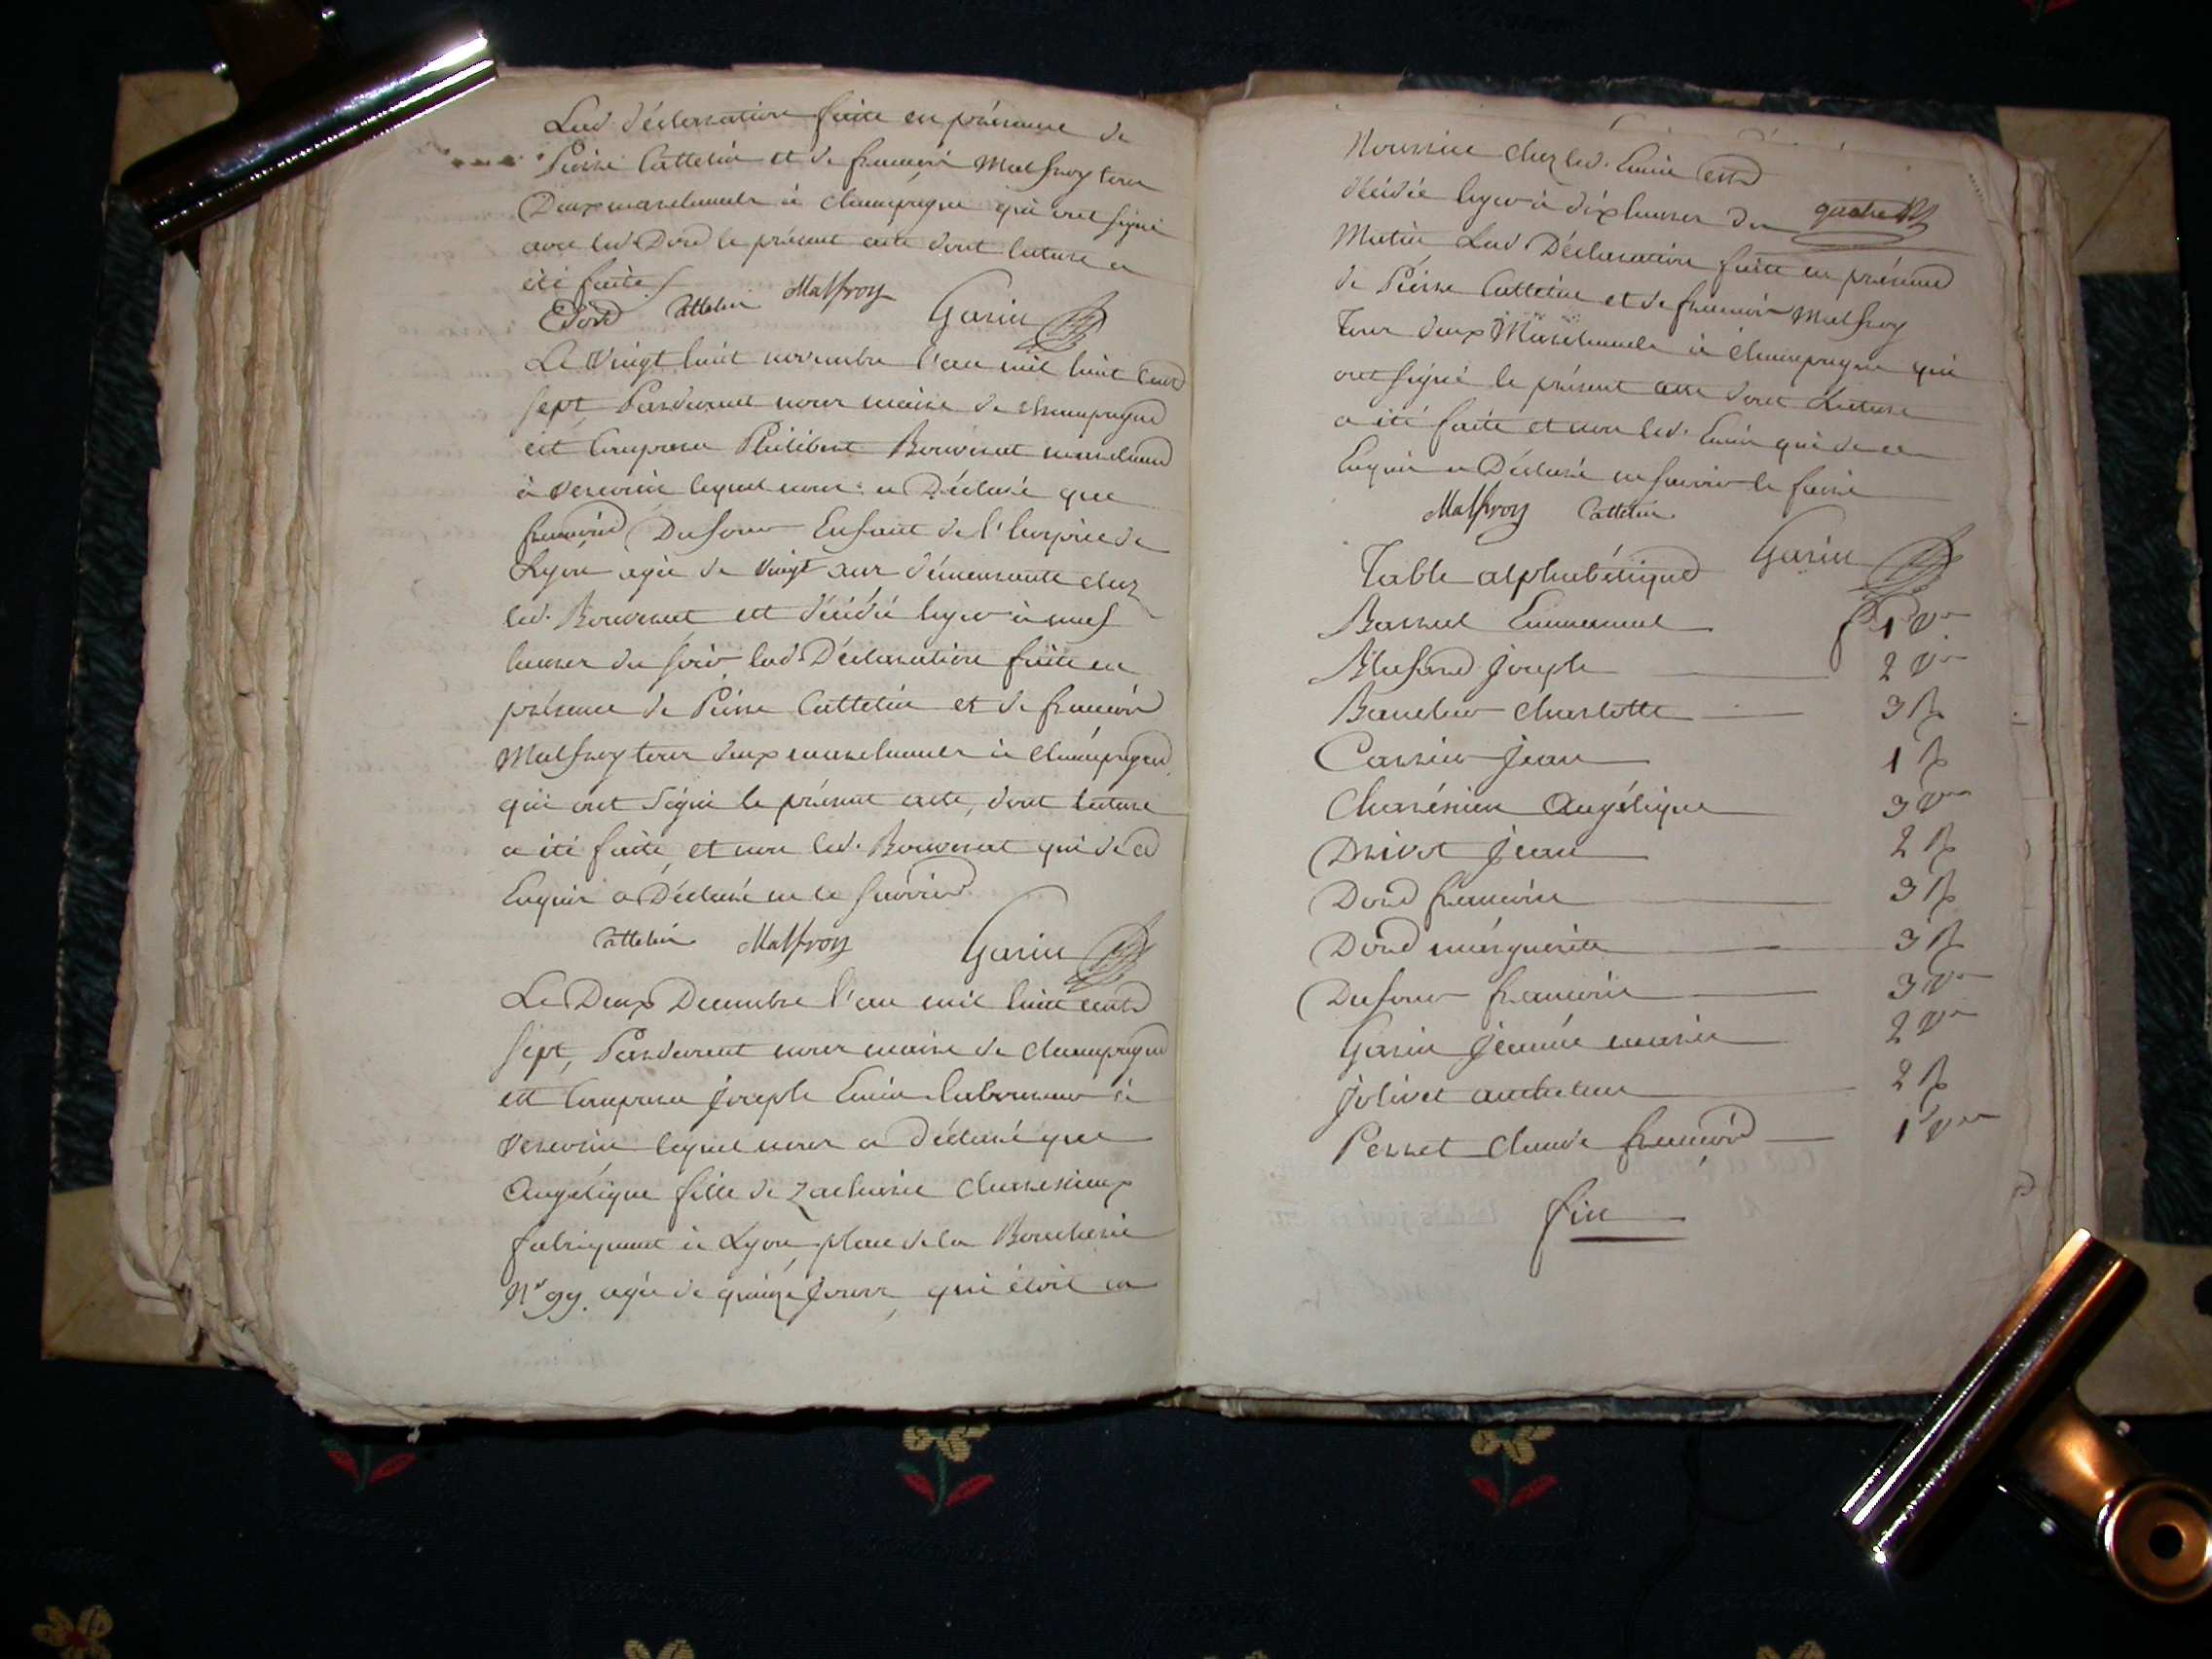 Lad déclaration faite en présence de
Pierre Cattelin et de françois Malfroy tous
Deux marchands à Champagne qui ont signé
avec led Dord le présent acte dont lecture a
été faite
Dord Cattelin Malfroy Garin
Le Vingt huit novembre l'an mil huit cent
sept, Pardevant nous maire de champagne
est comparu Philibert Bouverat marchand
à lequel nous a Déclaré que
françois Dufour Enfant de l'hospice de
Lyon agé de Vingt ans démeurante chez
led. Bouverat est décédé hyer à neuf
heures du soir lad Déclaration faite en
présence de Pierre Cattelin et de françois
Malfroy tous deux marchands à Champagne
qui ont Signé le présent acte, dont lecture
a été faite et non led. Bouverat qui de ce
Enquis a Déclaré ne le savoir
Cattelin Malfroy Garin
Le Deux Decembre l'an mil huit cent
sept, Pardevant nous maire de champagne
est comparu joseph Emin laboureur à
lequel nous a Déclaré que
Angélique fille de zacharie
fabriquant à Lyon place de la Boucherie
N° 99. agée de quinze jours, qui étoit en
Nourrice chez led. Emin est
décédée hyer à dix heures du
quatre
Matin Lad Déclaration faite en présence
de Pierre Cattelin et de françois Malfroy
Tous deux Marchands à Champagne qui
ont signé le présent acte dont Lecture
a été faite et non led. Emin qui de ce
Enquis a Déclaré ne savoir le faire
Malfroy Cattelin
Garin
Table alphabétique
Barruel Emmanuel f° 1 Vo
joseph 2 Vo
charlotte 3 R
Carrier jean 1 R
Angélique 3 Vo
Drivet jean 2 R
Dord françoise 3 R
Dord marguerite 3 R
Dufour françois 3 Vo
Garin jeanne marie 2 Vo
jolivet anthelme 2 R
Perret claude françois 1 Vo
fin